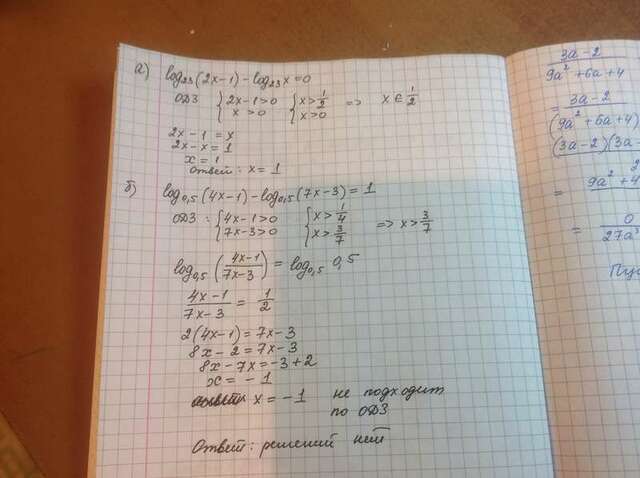 а) log₂₃(2x-1) - log₂₃x = 0
ОДЗ { 2x-1>0 { x>1/2 => x ∈ 1/2
x>0 x>0
2x-1 = x
2x-x = 1
x = 1
Ответ: x = 1
б) log₀,₅(4x-1) - log₀,₅(7x-3) = 1
ОДЗ: { 4x-1>0 { x>1/4 => x>3/7
7x-3>0 x>3/7
log₀,₅((4x-1)/(7x-3)) = log₀,₅ 0,5
(4x-1)/(7x-3) = 1/2
2(4x-1) = 7x-3
8x-2 = 7x-3
8x-7x = -3+2
x = -1
x = -1 не подходит
по ОДЗ
Ответ: решений нет
3a-2
9a²+6a+4
= 3a-2
(9a²+6a+4)
(3a-2)(3a-
=
9a²+4
= 0
27a³